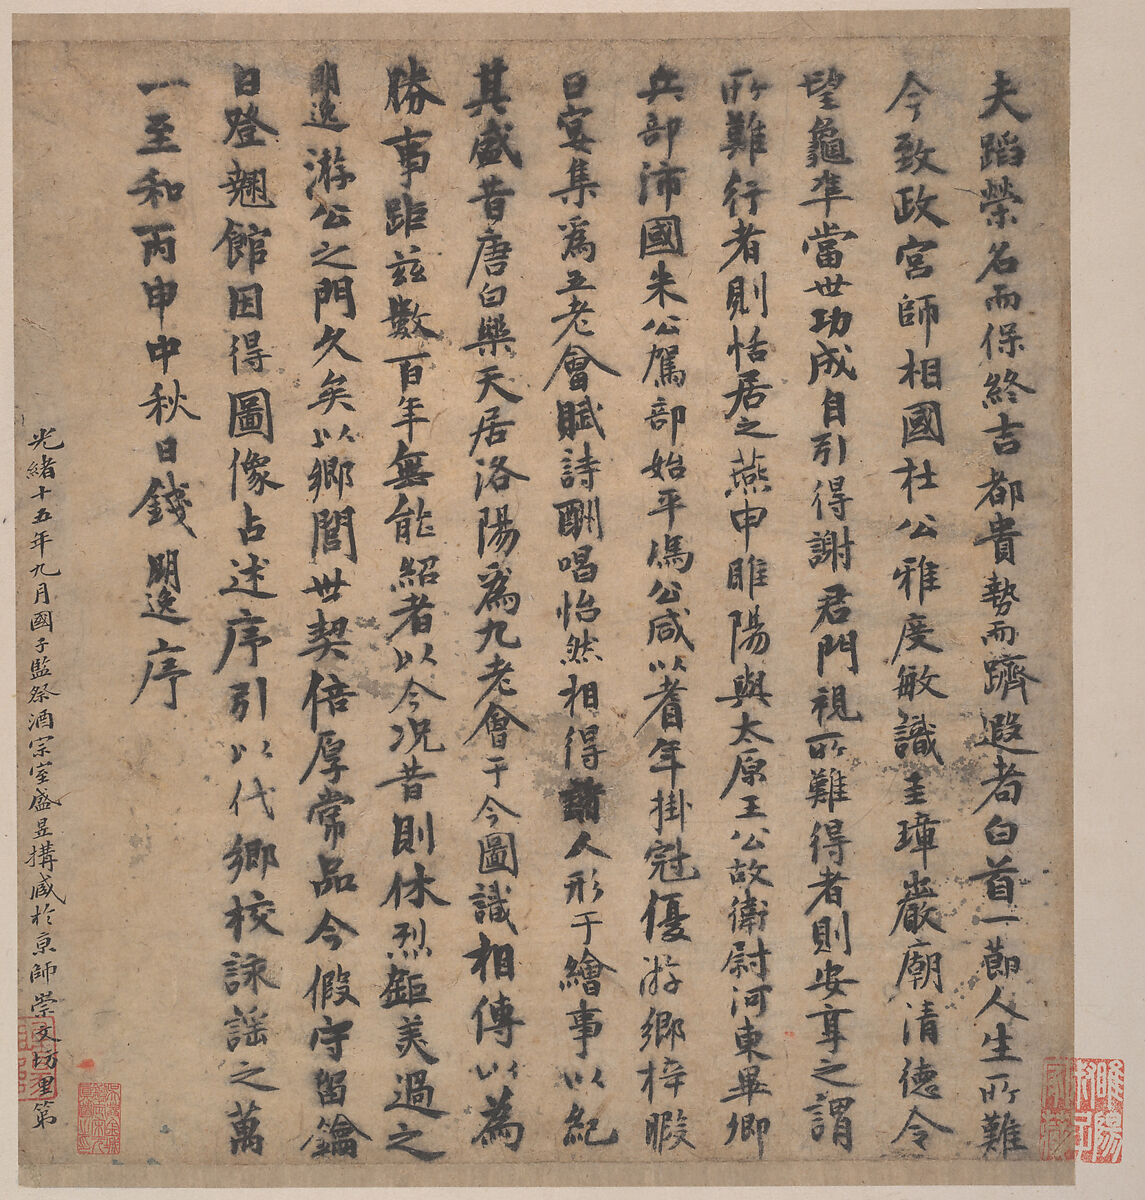 夫蹈榮名而保終吉都貴勢而躋遐耇白首一節人生所難
今致政宮師相國杜公雅度敏識圭璋巖廟清德令
望龜準當世功成自引得謝君門視所難得者則安享之謂
所難行者則恬居之燕申睢陽與太原王公故衛尉河東畢卿
兵部沛國朱公駕部始平馮公咸以耆年掛冠優游鄉梓暇
日宴集為五老會賦詩酬唱怡然相得諸人形于繪事以紀
其盛昔唐白樂天居洛陽為九老會于今圖識相傳以為
勝事距茲數百年無能紹者以今況昔則休烈鉅美過之
明逸游公之門久矣以鄉閭世契倍厚常品今假守留鑰
日登翹館因得圖像占述序引以代鄉校詠謠之萬
一至和丙申中秋日錢明逸序
光緒十五年九月國子監祭酒宗室盛昱搆藏於京師崇文坊里第
睢陽